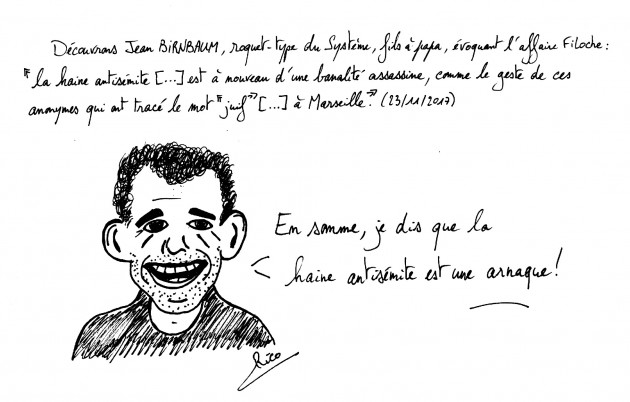 Découvrons Jean BIRNBAUM, roquet-type du Système, fils à papa, évoquant l'affaire Filoche :
"la haine antisémite [...] est à nouveau d'une banalité assassine, comme le geste de ces
anonymes qui ont tracé le mot "juif" [...] à Marseille." (23/11/2017)
En somme, je dis que la
haine antisémite est une arnaque !
Rico